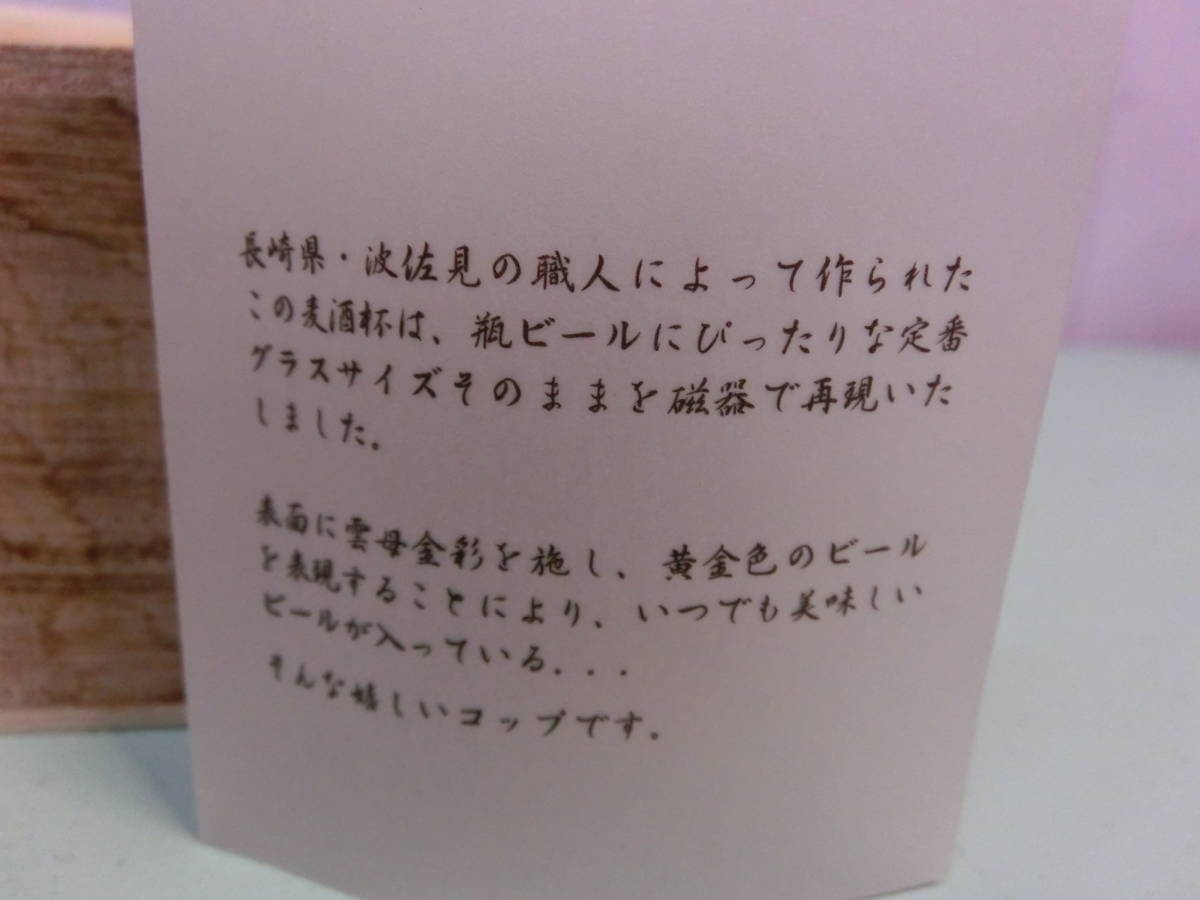 長崎県・波佐見の職人によって作られた
この麦酒杯は、瓶ビールにぴったりな定番
グラスサイズそのままを磁器で再現いた
しました。
表面に雲母金彩を施し、黄金色のビール
を表現することにより、いつでも美味しい
ビールが入っている...
そんな嬉しいコップです。